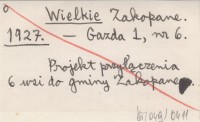 Wielkie Zakopane.
1927. — Gazda 1, nr 6.
Projekt przyłączenia
6 wsi do gminy Zakopane